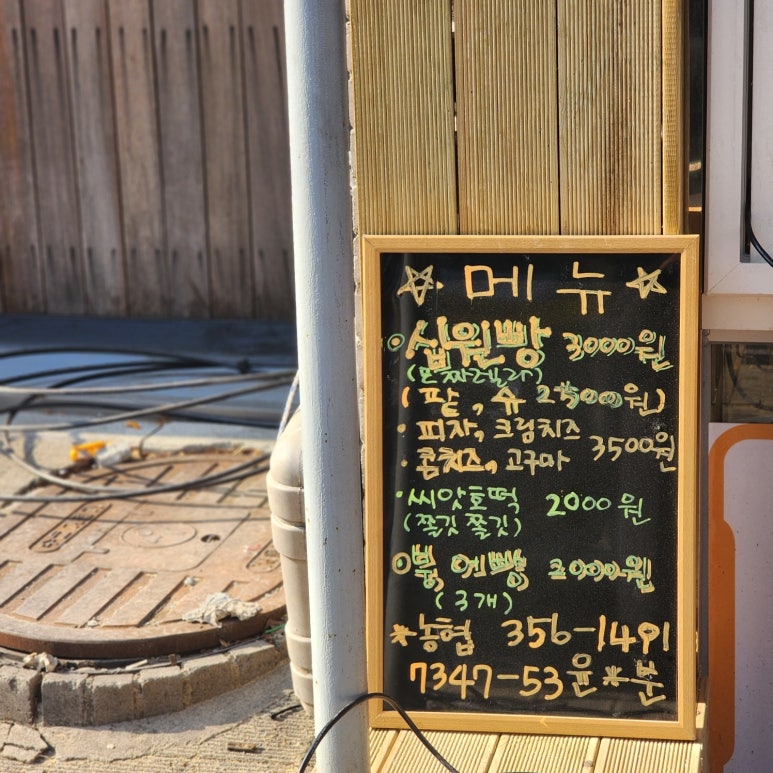 ☆ 메 뉴 ☆
○ 십원빵 3000원
(모짜렐라)
(팥, 슈 2500원)
· 피자, 크림치즈
· 콘치즈, 고구마 3500원
· 씨앗호떡 2000원
(쫄깃쫄깃)
○ 붕어빵 2000원
(3개)
*농협 356-1491
7347-53 윤*분